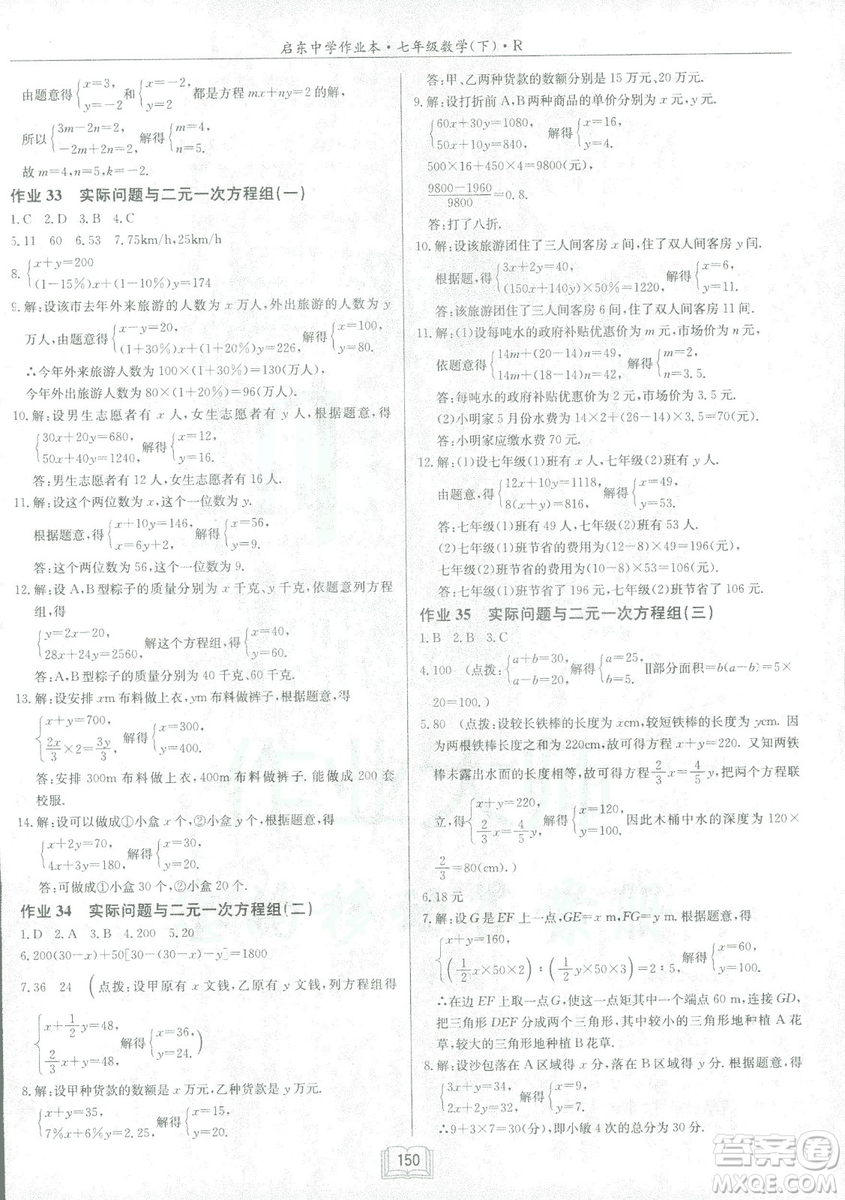 启东中学作业本·七年级数学(下)·R
由题意得{x=3, y=-2 和{x=-2, y=2 都是方程 mx+ny=2 的解,
所以{3m-2n=2, -2m+2n=2. 解得{m=4, n=5.
故 m=4,n=5.
作业 33 实际问题与二元一次方程组(一)
1.C 2.D 3.B 4.C
5.11 60 6.53 7.75km/h,25km/h
8.{x+y=200 (1-15%)x+(1-10%)y=174
9.解:设该市去年外来旅游的人数为 x 万人,外出旅游的人数为 y
万人,由题意得{x-y=20, (1+30%)x+(1+20%)y=226, 解得{x=100, y=80,
∴今年外来旅游人数为 100×(1+30%)=130(万人),
今年外出旅游人数为 80×(1+20%)=96(万人).
10.解:设男生志愿者有 x 人,女生志愿者有 y 人,根据题意,得
{30x+20y=680, 50x+40y=1240. 解得{x=12, y=16.
答:男生志愿者有 12 人,女生志愿者有 16 人.
11.解:设这个两位数为 x,这个一位数为 y.
根据题意,得{x+10y=146, x=6y+2, 解得{x=56, y=9.
答:这个两位数为 56,这个一位数为 9.
12.解:设 A,B 型粽子的质量分别为 x 千克、y 千克,依题意列方程
组,得
{y=2x-20, 28x+24y=2560. 解这个方程组,得{x=40, y=60.
答:A,B 型粽子的质量分别为 40 千克、60 千克.
13.解:设安排 xm 布料做上衣,ym 布料做裤子.根据题意,得
{x+y=700, 2x/3×2=3y/3, 解得{x=300, y=400.
答:安排 300m 布料做上衣,400m 布料做裤子.能做成 200 套
校服.
14.解:设可以做成①小盒 x 个,②小盒 y 个.根据题意,得
{x+2y=70, 4x+3y=180, 解得{x=30, y=20.
答:可做成①小盒 30 个,②小盒 20 个.
作业 34 实际问题与二元一次方程组(二)
1.D 2.A 3.B 4.200 5.20
6.200(30-x)+50[30-(30-x)-y]=1800
7.36 24 (点拨:设甲原有 x 文钱,乙原有 y 文钱,列方程组得
{x+1/2y=48, 2/3x+y=48, 解得{x=36, y=24.)
8.解:设甲种货款的数额是 x 万元,乙种货款是 y 万元.
{x+y=35, 解得{x=15, y=20.
答:甲、乙两种货款的数额分别是 15 万元、20 万元.
9.解:设打折前 A,B 两种商品的单价分别为 x 元、y 元.
{60x+30y=1080, 50x+10y=840, 解得{x=16, y=4.
500×16+450×4=9800(元),
(9800-1960)/9800=0.8.
答:打了八折.
10.解:设该旅游团住了三人间客房 x 间,住了双人间客房 y 间.
根据题,得{3x+2y=46, 解得{x=8, y=11.
答:该旅游团住了三人间客房 8 间,住了双人间客房 11 间.
11.解:(1)设每吨水的政府补贴优惠价为 m 元,市场价为 n 元.
依题意得{14m+(20-14)n=49, 14m+(18-14)n=42. 解得{m=2, n=3.5.
答:每吨水的政府补贴优惠价为 2 元,市场价为 3.5 元.
(2)小明家 5 月份水费为 14×2+(26-14)×3.5=70(元).
答:小明家应缴水费 70 元.
12.解:(1)设七年级(1)班有 x 人,七年级(2)班有 y 人.
由题意,得{12x+10y=1118, 8(x+y)=816, 解得{x=49, y=53.
答:七年级(1)班有 49 人,七年级(2)班有 53 人.
(2)七年级(1)班节省的费用为(12-8)×49=196(元),
七年级(2)班节省的费用为(10-8)×53=106(元).
答:七年级(1)班节省了 196 元,七年级(2)班节省了 106 元.
作业 35 实际问题与二元一次方程组(三)
1.B 2.B 3.C
4.100 (点拨:{a+b=30, a-b=20. 解得{a=25, b=5, Ⅱ部分面积=b(a-b)=5×
20=100.)
5.80 (点拨:设较长铁棒的长度为 xcm,较短铁棒的长度为 ycm. 因
为两根铁棒长度之和为 220cm,故可得方程 x+y=220. 又知两铁
棒未露出水面的长度相等,故可得方程 2/3x=4/5y,把两个方程联
立,得{x+y=220, 2/3x=4/5y, 解得{x=120, y=100. 因此木桶中水的深度为 120×
2/3=80(cm).)
6.18 元
7.解:设 G是 EF 上一点,GE=x m,FG=y m.根据题意,得
{x+y=160, (1/2x×50×2):(1/2y×50×3)=2:5. 解得{x=60, y=100.
∴在边 EF 上取一点 G,使这一点距其中一端点 60 m,连接 GD,
把三角形 DEF 分成两个三角形,较小的三角形地种植 A 花
草,较大的三角形地种植 B 花草.
8.解:设沙包落在 A 区域得 x 分,落在 B 区域得 y 分.根据题意,得
{3x+y=34, 2x+2y=32, 解得{x=9, y=7.
∴9+3×7=30(分),即小敏 4 次总分为 30 分.
150
答案圈
MXQE.COM